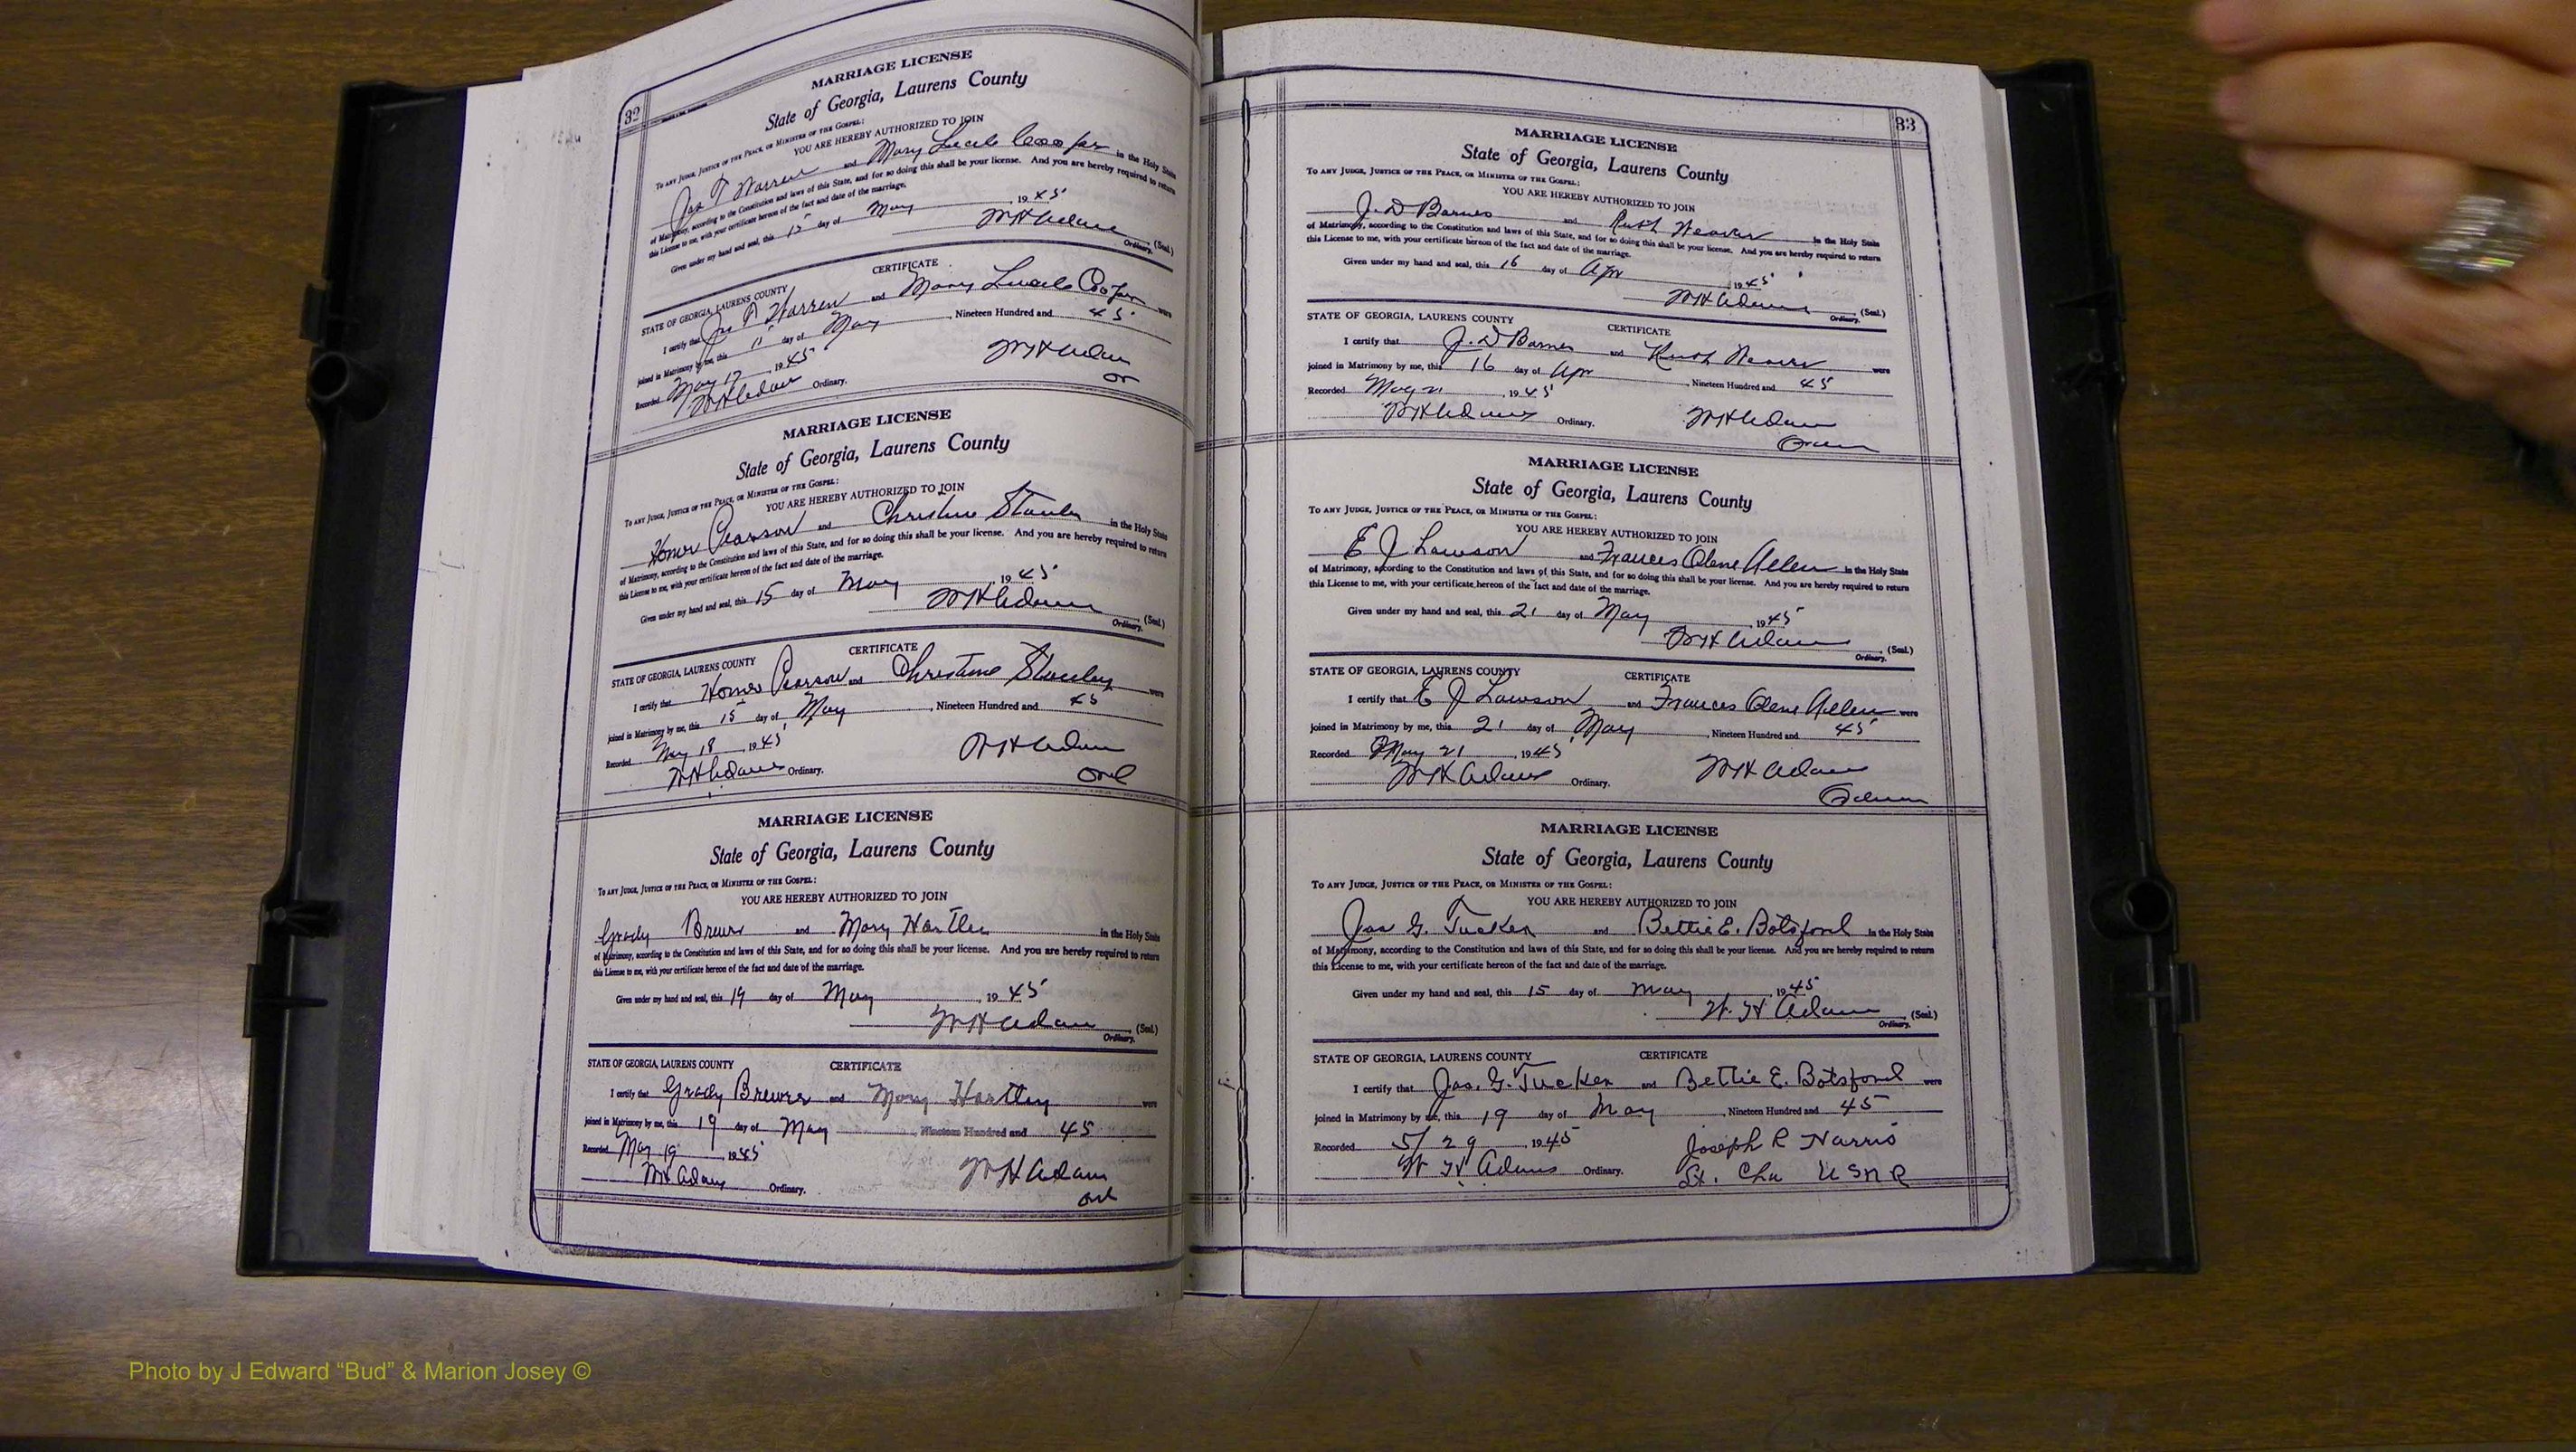 32
MARRIAGE LICENSE
State of Georgia, Laurens County
To any Judge, Justice of the Peace, or Minister of the Gospel:
YOU ARE HEREBY AUTHORIZED TO JOIN
Jas T Warren and Mary Lucile Cooper in the Holy State
of Matrimony, according to the Constitution and laws of this State, and for so doing this shall be your license. And you are hereby required to return
this License to me, with your certificate hereon of the fact and date of the marriage.
Given under my hand and seal, this day of May, 1945
WH Adams (Seal.)
Ordinary.
CERTIFICATE
STATE OF GEORGIA, LAURENS COUNTY
I certify that Jas T Warren and Mary Lucile Cooper were
joined in Matrimony by me, this day of May, Nineteen Hundred and 45
Recorded May 17, 1945
WH Adams Ordinary. WH Adams
or
MARRIAGE LICENSE
State of Georgia, Laurens County
To any Judge, Justice of the Peace, or Minister of the Gospel:
YOU ARE HEREBY AUTHORIZED TO JOIN
Homer Pearson and Christine Stanley in the Holy State
of Matrimony, according to the Constitution and laws of this State, and for so doing this shall be your license. And you are hereby required to return
this License to me, with your certificate hereon of the fact and date of the marriage.
Given under my hand and seal, this 15 day of May, 1945
WH Adams (Seal.)
Ordinary.
CERTIFICATE
STATE OF GEORGIA, LAURENS COUNTY
I certify that Homer Pearson and Christine Stanley were
joined in Matrimony by me, this 15 day of May, Nineteen Hundred and 45
Recorded May 18, 1945
WH Adams Ordinary. WH Adams
Ord
MARRIAGE LICENSE
State of Georgia, Laurens County
To any Judge, Justice of the Peace, or Minister of the Gospel:
YOU ARE HEREBY AUTHORIZED TO JOIN
Grady Brewer and Mary Hartley in the Holy State
of Matrimony, according to the Constitution and laws of this State, and for so doing this shall be your license. And you are hereby required to return
this License to me, with your certificate hereon of the fact and date of the marriage.
Given under my hand and seal, this 19 day of May, 1945
WH Adams (Seal.)
Ordinary.
STATE OF GEORGIA, LAURENS COUNTY CERTIFICATE
I certify that Grady Brewer and Mary Hartley were
joined in Matrimony by me, this 19 day of May, Nineteen Hundred and 45
Recorded May 19, 1945
WH Adams Ordinary. WH Adams
Ord
83
MARRIAGE LICENSE
State of Georgia, Laurens County
To any Judge, Justice of the Peace, or Minister of the Gospel:
YOU ARE HEREBY AUTHORIZED TO JOIN
J. D Barnes and Ruth Weaver in the Holy State
of Matrimony, according to the Constitution and laws of this State, and for so doing this shall be your license. And you are hereby required to return
this License to me, with your certificate hereon of the fact and date of the marriage.
Given under my hand and seal, this 16 day of Apr, 1945
WH Adams (Seal.)
Ordinary.
STATE OF GEORGIA, LAURENS COUNTY CERTIFICATE
I certify that J. D Barnes and Ruth Weaver were
joined in Matrimony by me, this 16 day of Apr, Nineteen Hundred and 45
Recorded May 21, 1945
WH Adams Ordinary. WH Adams
MARRIAGE LICENSE
State of Georgia, Laurens County
To any Judge, Justice of the Peace, or Minister of the Gospel:
YOU ARE HEREBY AUTHORIZED TO JOIN
E J Lawson and Frances Olene Allen in the Holy State
of Matrimony, according to the Constitution and laws of this State, and for so doing this shall be your license. And you are hereby required to return
this License to me, with your certificate hereon of the fact and date of the marriage.
Given under my hand and seal, this 21 day of May, 1945
WH Adams (Seal.)
Ordinary.
STATE OF GEORGIA, LAURENS COUNTY CERTIFICATE
I certify that E J Lawson and Frances Olene Allen were
joined in Matrimony by me, this 21 day of May, Nineteen Hundred and 45
Recorded May 21, 1945
WH Adams Ordinary. WH Adams
MARRIAGE LICENSE
State of Georgia, Laurens County
To any Judge, Justice of the Peace, or Minister of the Gospel:
YOU ARE HEREBY AUTHORIZED TO JOIN
Jas G. Tucker and Bettie E. Botsford in the Holy State
of Matrimony, according to the Constitution and laws of this State, and for so doing this shall be your license. And you are hereby required to return
this License to me, with your certificate hereon of the fact and date of the marriage.
Given under my hand and seal, this 15 day of May, 1945
W. H Adams (Seal.)
Ordinary.
STATE OF GEORGIA, LAURENS COUNTY CERTIFICATE
I certify that Jas. G. Tucker and Bettie E. Botsford were
joined in Matrimony by me, this 19 day of May, Nineteen Hundred and 45
Recorded 5/29, 1945 Joseph R Harris
W H Adams Ordinary. Lt. Chu USNR
Photo by J Edward “Bud” & Marion Josey ©